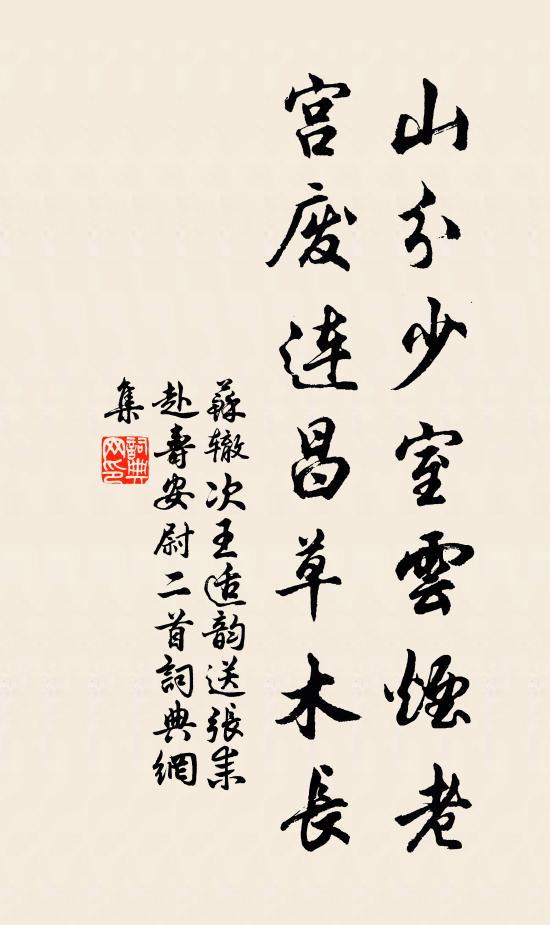 山分少室雲煙老
宮廢連昌草木長
蘇辙次王适韵送張耒
赴壽安尉二首詞典網
集
詞典
网印